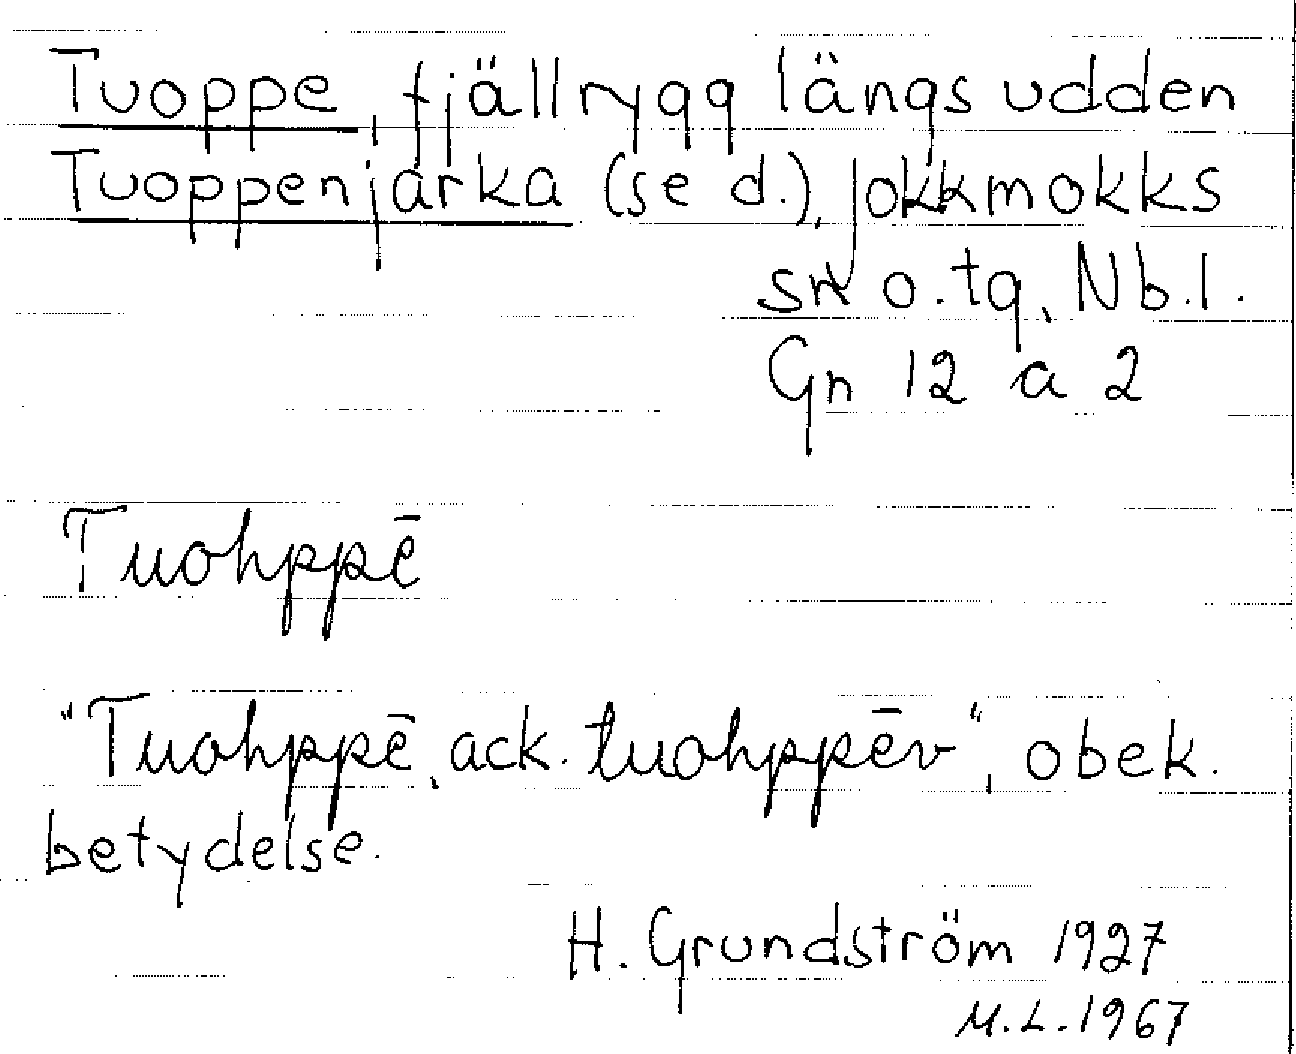 Tuoppe, fjällrygg längs udden
Tuoppenjarka (se d.), Jokkmokks
sn o. tg, Nb.l.
Gn 12 a 2
Tuohppē
"Tuohppē, ack. tuohppēv", obek.
betydelse.
H. Grundström 1927
M.L. 1967